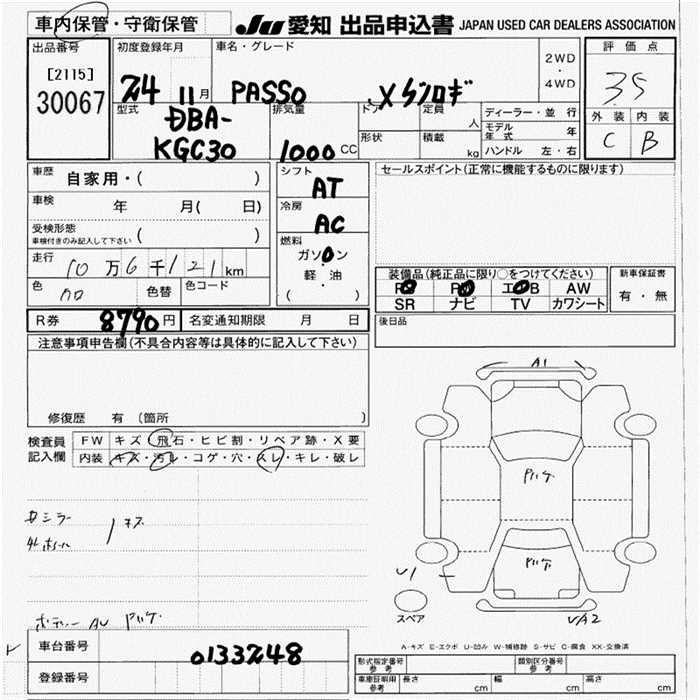 車内保管・守衛保管
JU 愛知 出品申込書 JAPAN USED CAR DEALERS ASSOCIATION
出品番号
[2115]
30067
初度登録年月
11月
車名・グレード
PASSO
2WD
・
4WD
評価点
35
外装 内装
C B
型式
DBA-
KGC30
排気量
1000 CC
ドア
定員
人
形状
積載
kg
ディーラー・並行
モデル年式
年
ハンドル 左・右
車歴
自家用・( )
車検
年 月( 日)
受検形態
車検付きのみ記入して下さい ( )
走行
10万6千121km
色
色替
色コード
シフト
AT
冷房
AC
燃料
ガソリン
軽・油
( )
セールスポイント(正常に機能するものに限ります)
装備品(純正品に限り○をつけてください)
AW
SR ナビ TV カワシート
新車保証書
有・無
R券
8790円
名変通知期限 月 日
後日品
注意事項申告欄(不具合内容等は具体的に記入して下さい)
修復歴 有 (箇所 )
検査員
記入欄
FW キズ・飛石・ヒビ割・リペア跡・X要
内装 キズ・汚レ・コゲ・穴・スレ・キレ・破レ
A1
U1
スペア
A-キズ E-エクボ U-凹み W-補修跡 S-サビ C-腐食 XX-交換済
車台番号
登録番号
型式指定番号
参考
類別区分番号
参考
車庫証明用
参考
長さ cm
幅 cm
高さ cm